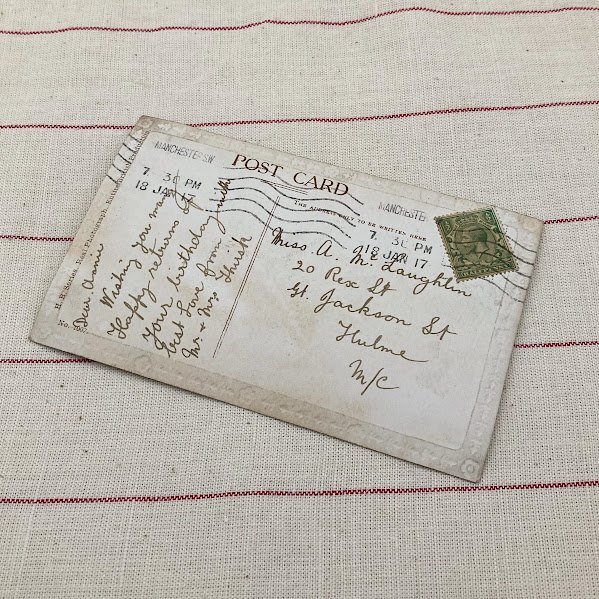 POST CARD
THE ADDRESS ONLY TO BE WRITTEN HERE
MANCHESTER SW
7 30 PM
18 JAN 17
MANCHESTER
7 30 PM
18 JAN 17
Dear Annie
Wishing you many
Happy returns of
Your birthday with
best Love from
Mr. & Mrs
Miss. A. McLaughlin
20 Rex St
Gt. Jackson St
Hulme
M/C